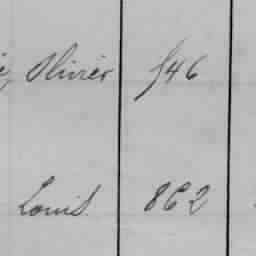 Olivier 546
Louis 862